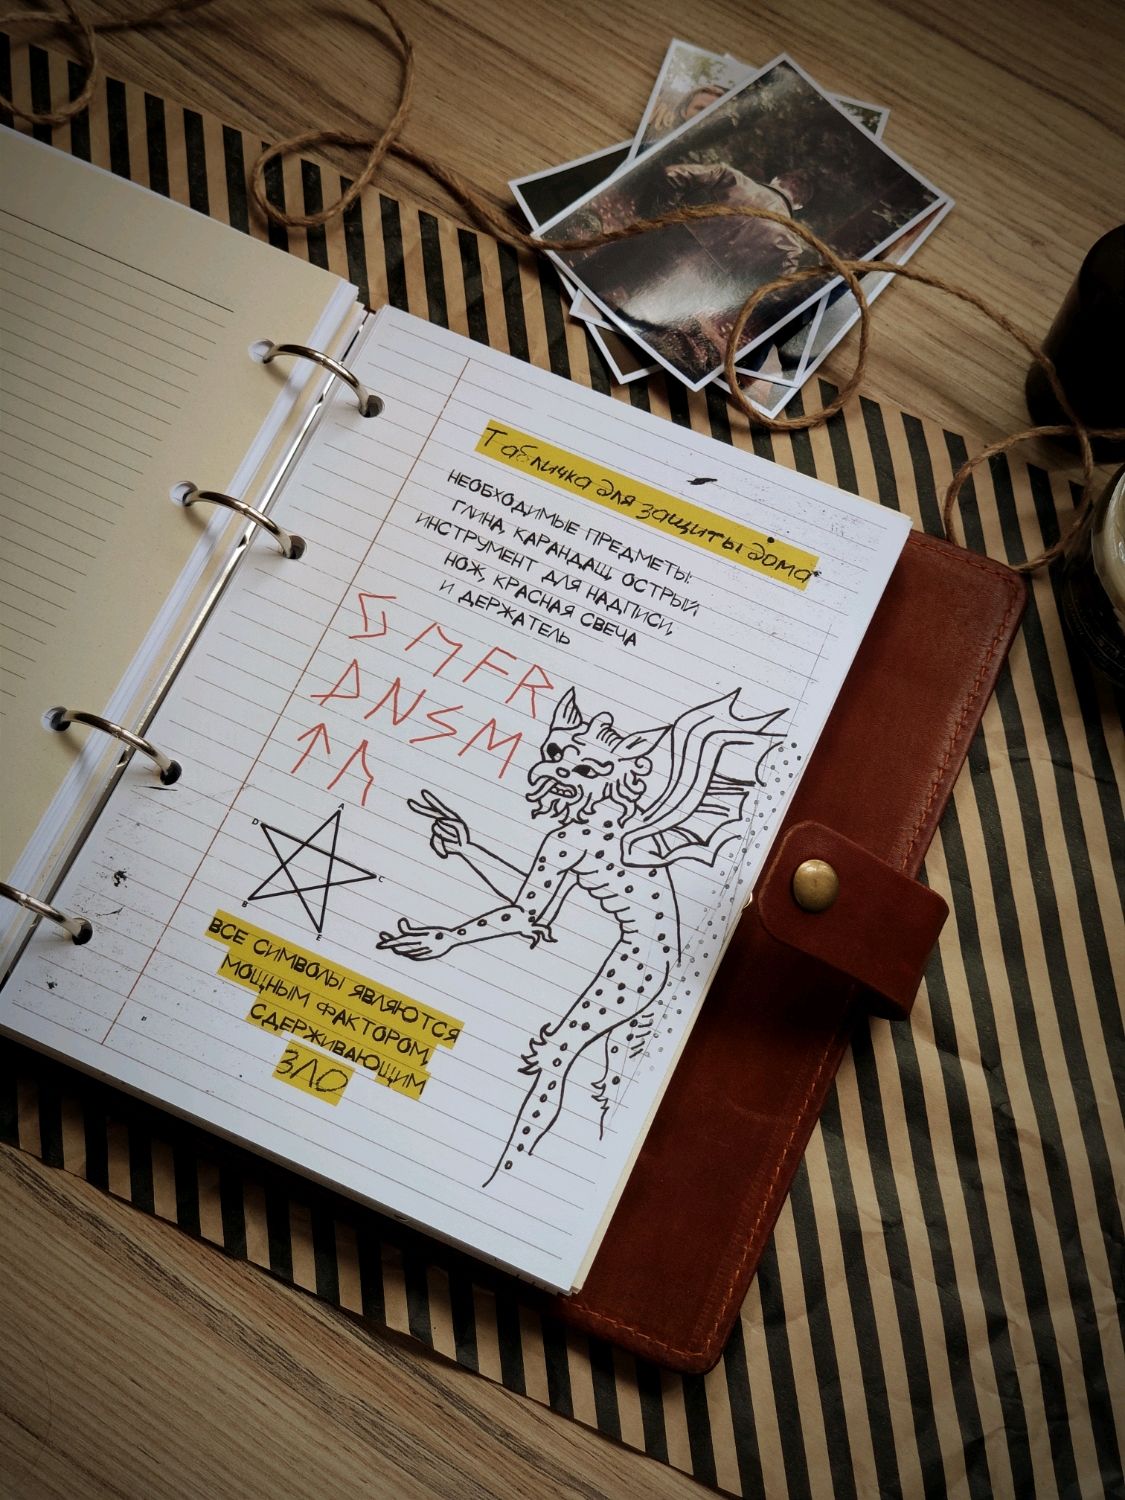 Табличка для защиты дома
НЕОБХОДИМЫЕ ПРЕДМЕТЫ:
ГЛИНА, КАРАНДАШ, ОСТРЫЙ
ИНСТРУМЕНТ ДЛЯ НАДПИСИ,
НОЖ, КРАСНАЯ СВЕЧА
И ДЕРЖАТЕЛЬ
A
D
C
B
E
ВСЕ СИМВОЛЫ ЯВЛЯЮТСЯ
МОЩНЫМ ФАКТОРОМ,
СДЕРЖИВАЮЩИМ
ЗЛО